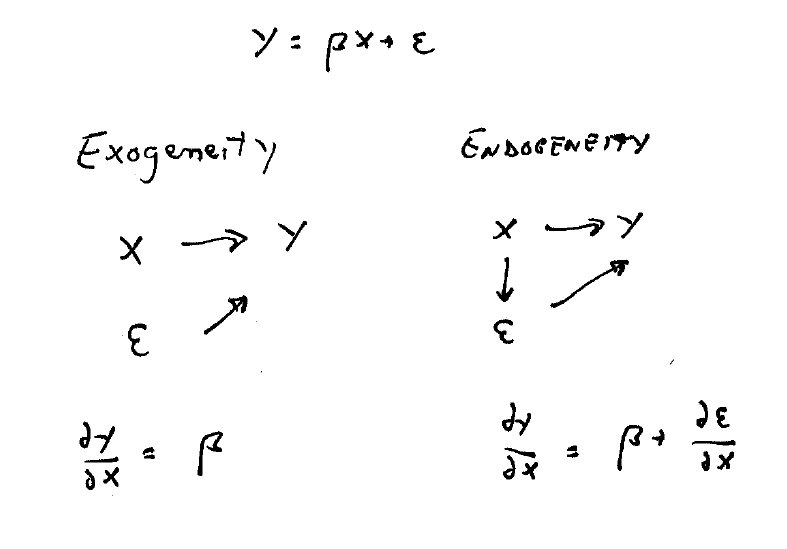 Y = βX + ε
Exogeneity
X → Y
ε
∂Y/∂X = β
ENDOGENEITY
X → Y
↓
ε
∂Y/∂X = β + ∂ε/∂X